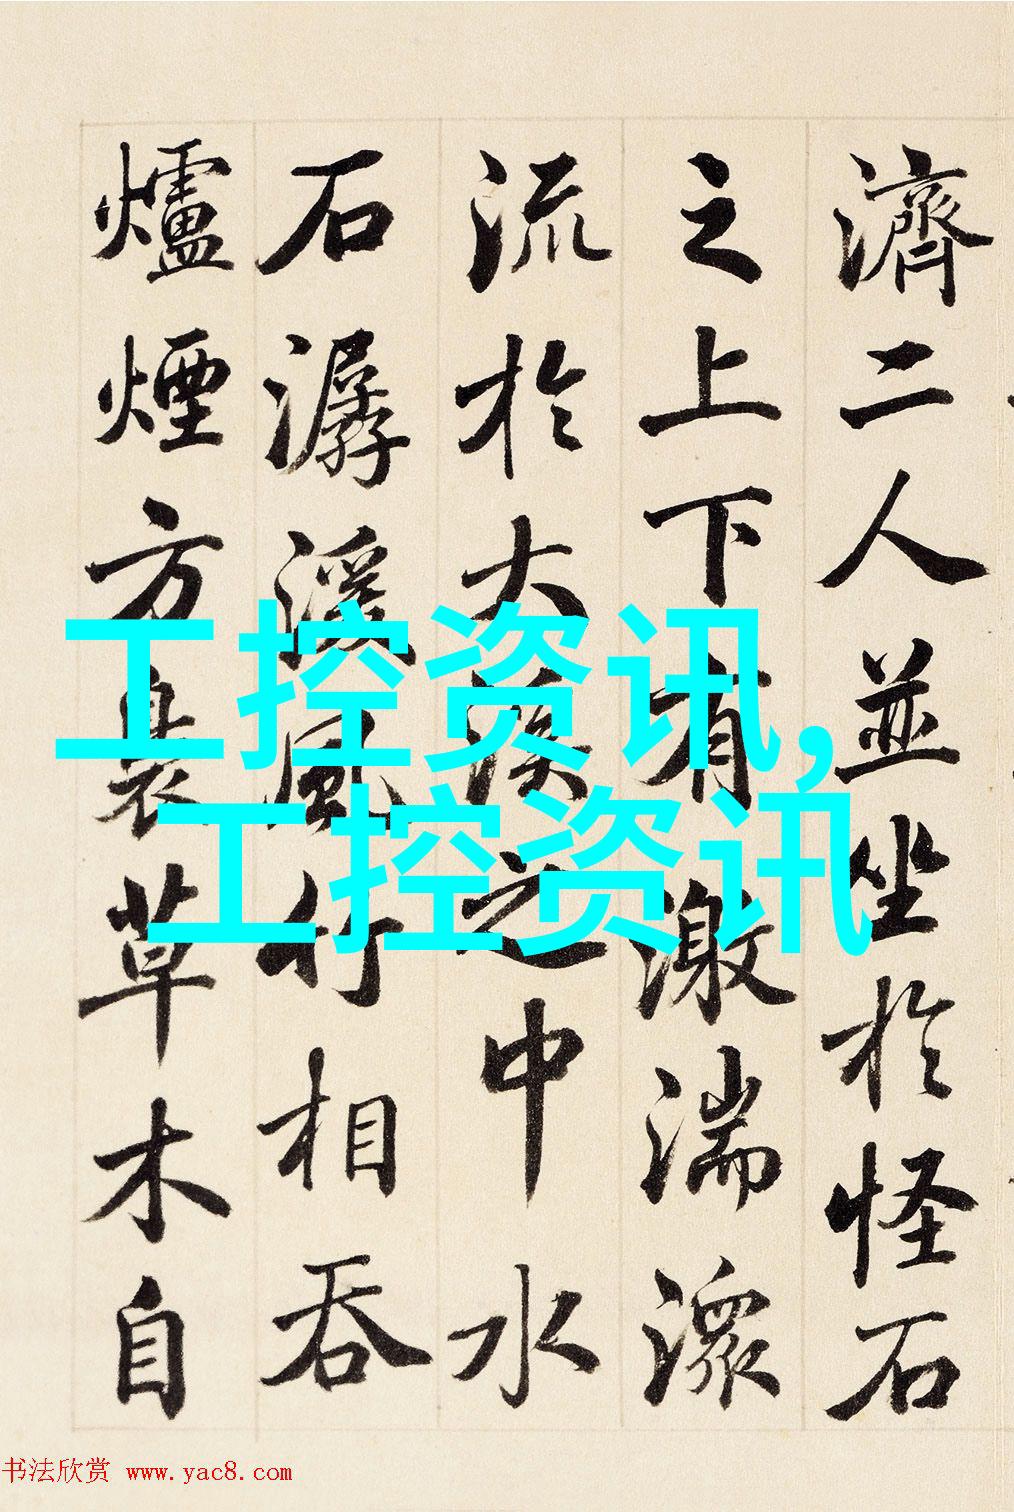 濟二人並坐於怪石
之上下有激湍潨
流於大溪之中水
石潺湲風竹相吞
爐煙方裊草木自
工控资讯,
工控资讯
书法欣赏 www.yac8.com